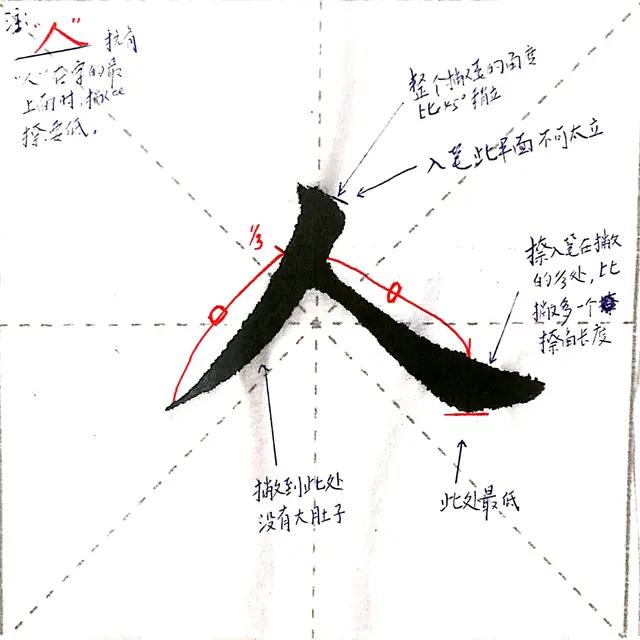 注:"人"
"人"在字的最
上面时,撇收
捺要低。
整个撇的角度
比45°稍立
入笔此平面不可太立
1/3
捺入笔在撇
的1/3处,比
撇多一个
捺的长度
撇到此处
没有大肚子
此处最低
人